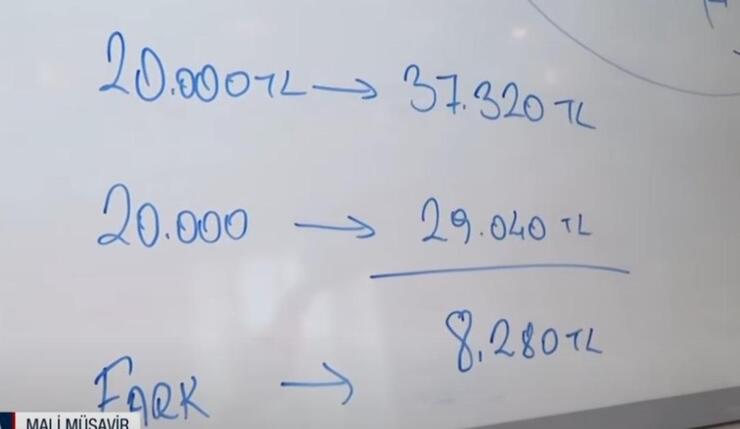 20.000TL → 37.320 TL
20.000 → 29.040 TL
8.280TL
FARK →
MALİ MÜŞAVİR